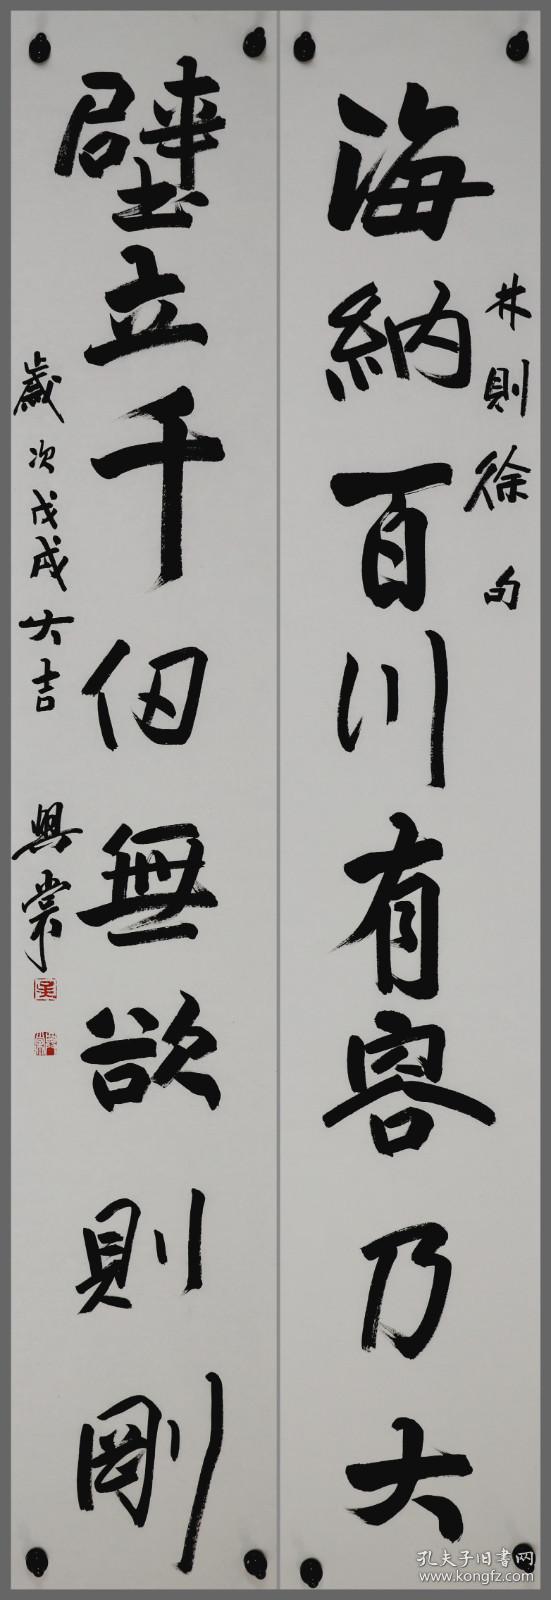 海納百川有容乃大
林則徐句
壁立千仞無欲則剛
歲次戊戌大吉
興棠
孔夫子旧书网
www.kongfz.com